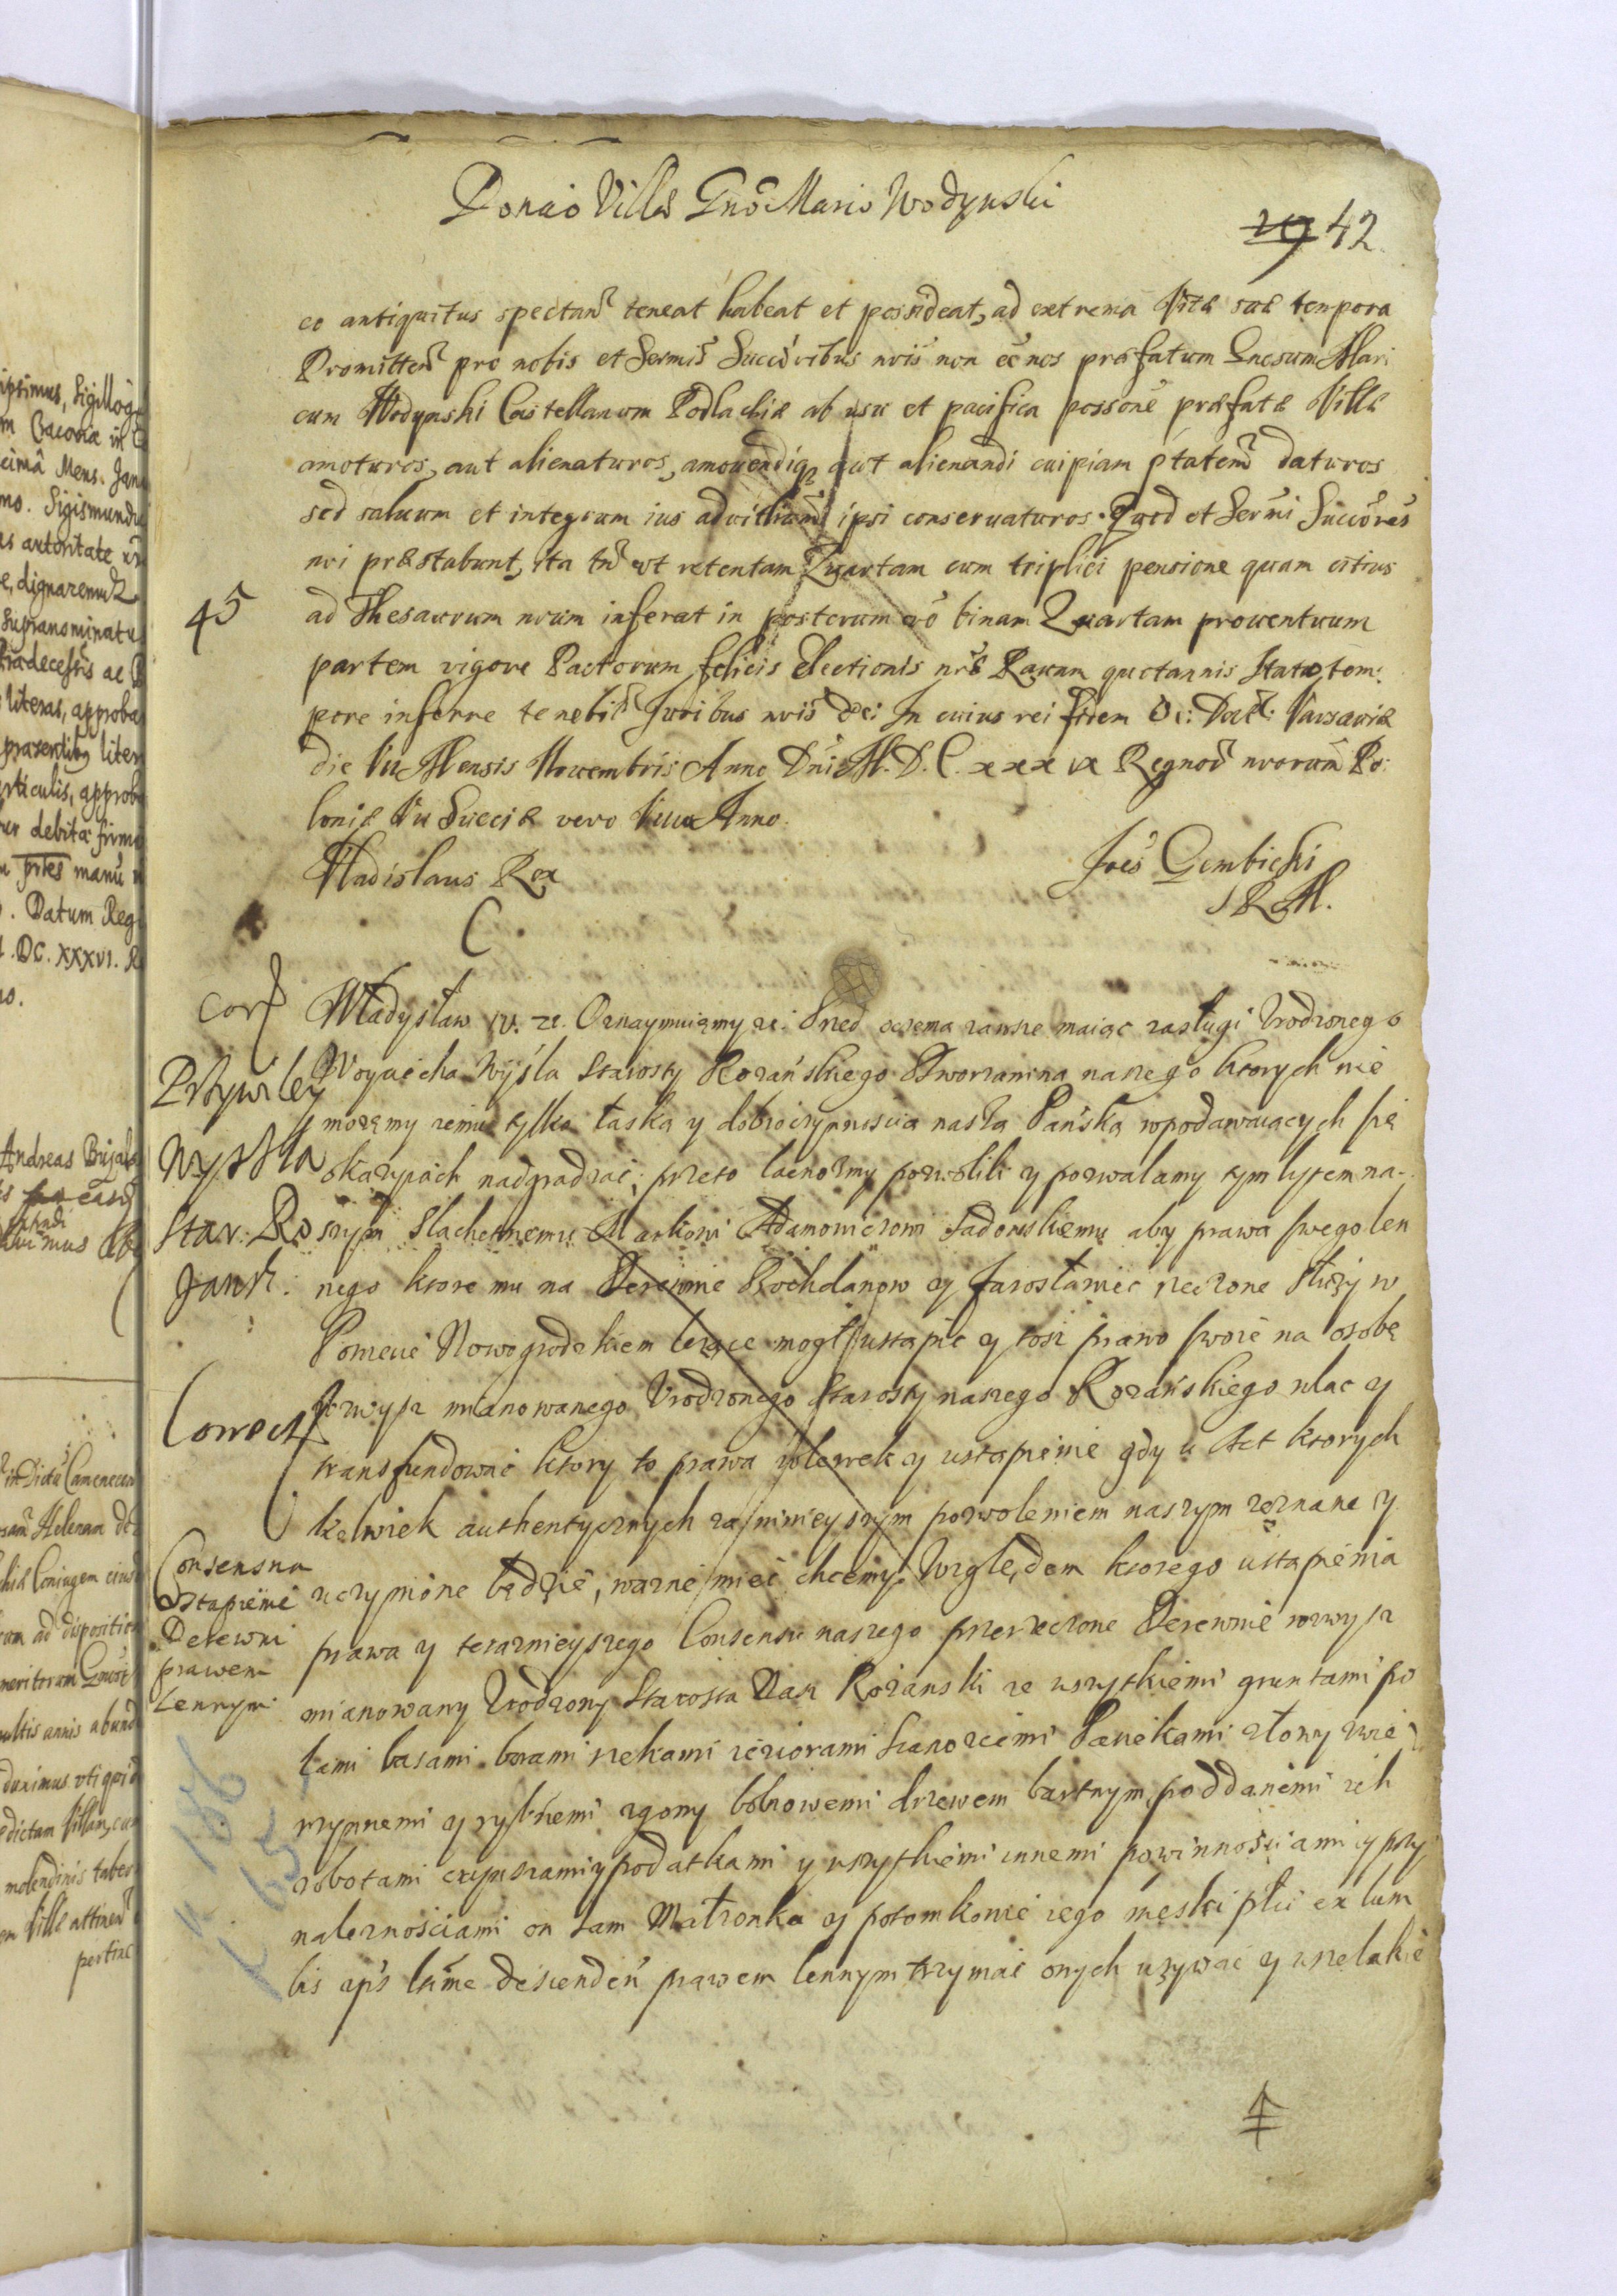 Donaio Villæ Gnõ Mario Wodynski
29 42
eo antiquitus spectan teneat habeat et possideat, ad extrema Vitæ suæ tempora
Promitten pro nobis et Sermis Succoribus nris non eē nos præfatum Gnosum Mari
cum Wodynski Castellanum Podlachiæ ab usu et pacifica possone præfatæ Villæ
amoturos, aut alienaturos, amouendiq aut alienandi cuipiam ptatem daturos
sed saluum et integrum ius aduitium ipsi conseruaturos. Quod et Sermi Succores
nri præstabunt, ita tñ ut retentam Quartam cum triplici pensione quam citius
45
ad Thesaurum nrum inferat in posterum vō binam Quartam prouentuum
partem vigore Pactorum felicis Electionis nræ Rauam quotannis Stato tem:
pore inferre tenebit Juribus nris &c: In cuius rei fidem &c: Dat: Varsauiæ
die Vii Mensis Nouembris Anno Dni M.D.C.xxxix Regnor nrorum Po:
loniæ Vii Sueciæ vero Viii Anno.
Vladislaus Rex
Joēs Gembicki
S R M.
C
Corr
Władysław IV. ze. Oznaymuiemy ze: Pred oczema zawsze maiąc zasługi Vrodzonego
Przywiley
Woyciecha Wyśla Starosty Rozańskiego Dworzanina naszego ktorych nie
możemy iemu tylko łaską y dobroczynnoscią naszą Pańską wpodawaiących się
Wyssla
okazyiach nadgradzać, przeto iacnośmy pozwolili y pozwalamy tym lystem na-
Star: Ro
szym Slachetnemu Markowi Adamowiczowi Sadowskiemu aby prawa swego len
zansk:
nego ktore mu na Derewnie Bochdanow y Jarosławiec rzeczone służy w
Powiecie Nowogrodzkiem leżące mogł ustąpic y tosz prawo swoie na osobę
Correct
zwysz mianowanego Vrodzonego Starosty naszego Rozańskiego wlac y
transfundować ktory to prawa wlewek y ustąpienie gdy u Act ktorych
kolwiek authentycznych za ninieyszym pozwoleniem naszym zeznane y
Consensna
uczynione będzie, wazne mieć chcemy. Względem ktorego ustąpienia
Vstapienie
Derewni
prawa y teraznieyszego Consensu naszego przerzeczone Derewnie wzwysz
prawem
mianowany Vrodzony Starosta Nasz Rożanski ze wszytkiemi gruntami po
Lennym
lami lasami borami rzekami ieziorami Sianozęćmi Pasiekami łowy zwie
rzynnemi y rybnemi zgony bobrowemi drzewem bartnym, poddanemi ich
robotami czynszami y podatkami y wszytkiemi innemi powinnościami y przy
należnościami on sam Małzonka y potomkowie iego męski płci ex lum
bis ipś ltme descenden prawem lennym trzymać onych używać y wszelakie